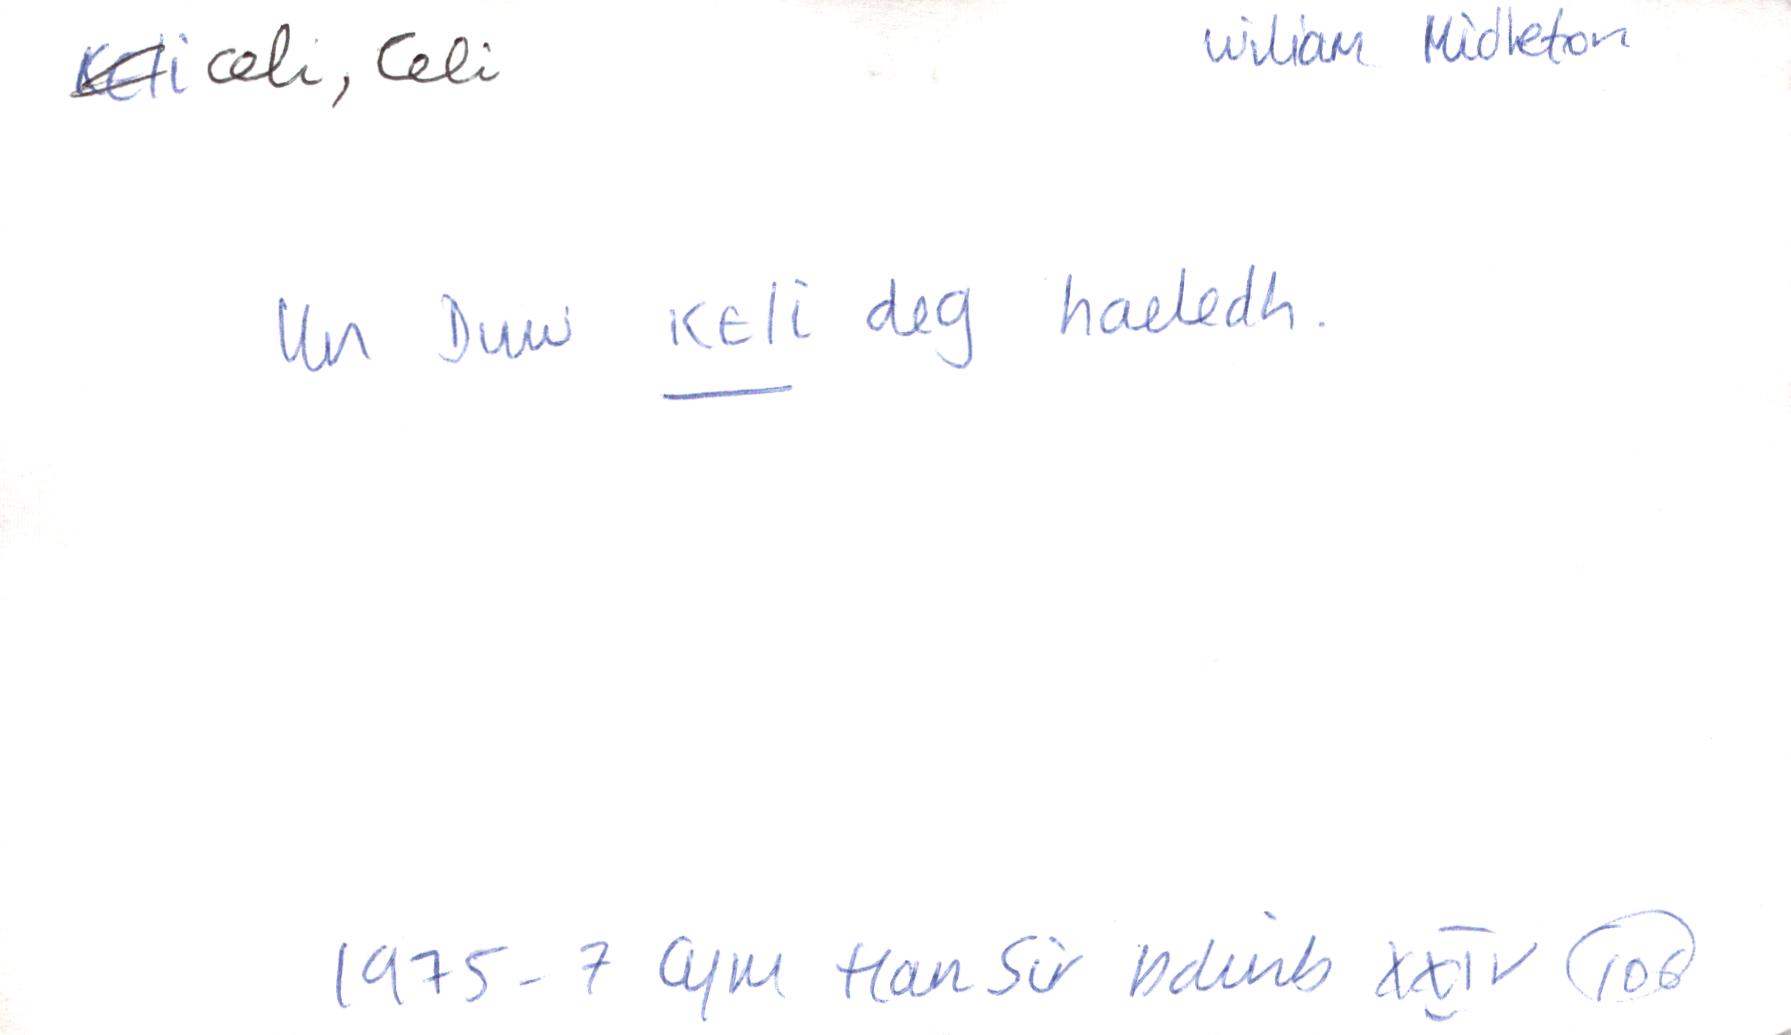 Keli celi, Celi
Wiliam Midleton
Un Duw KEli deg haeledh.
1975-7 Cym Han Sir Ddinb XXIV 106